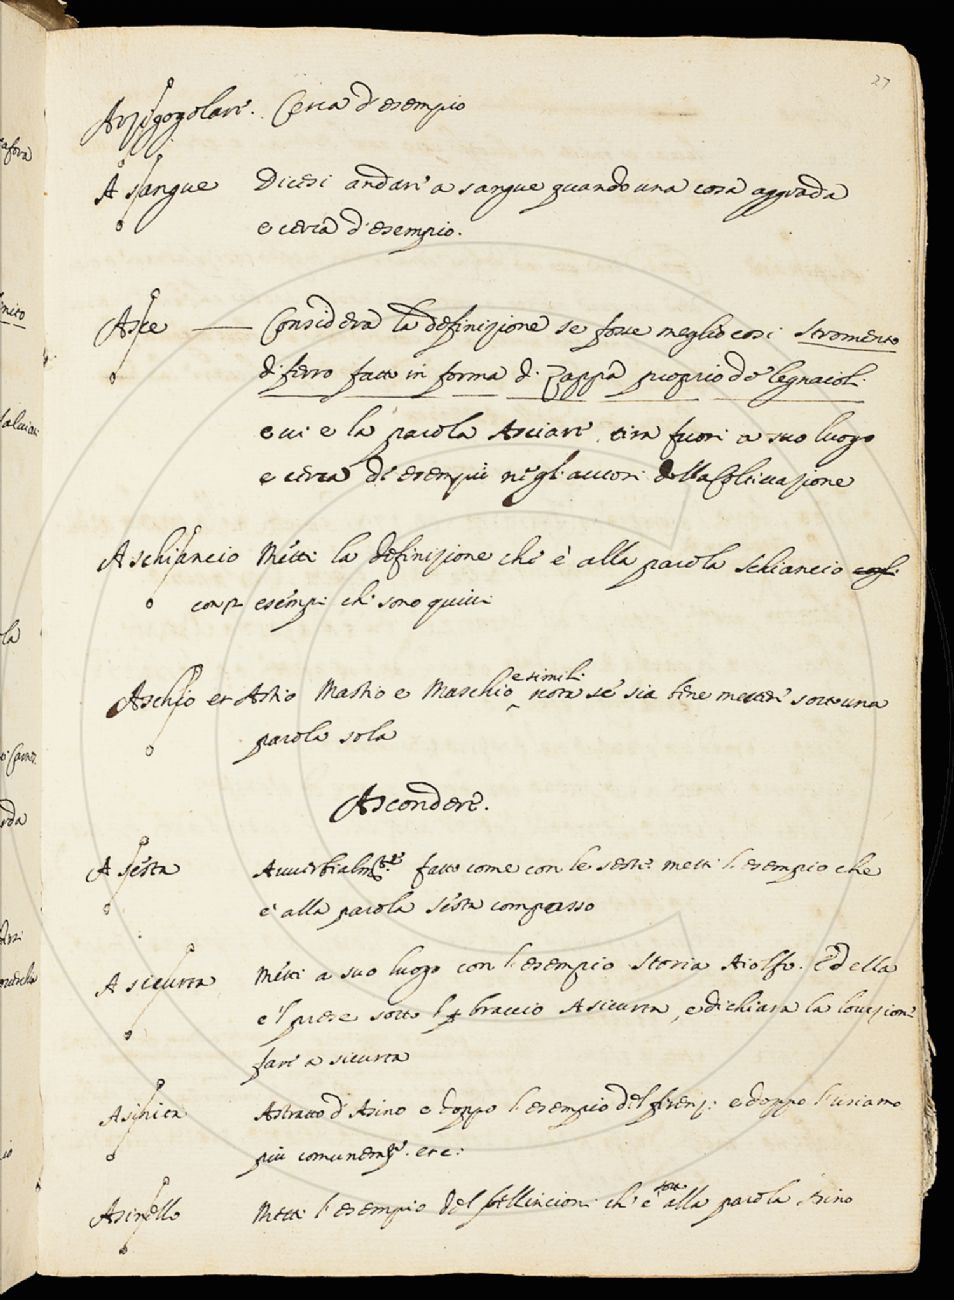 27
Arpigogolare. Cerca d'esempio
A sangue Dicesi andare a sangue quando una cosa aggrada
e cerca d'esempio.
Asce — Considera la definizione se fosse meglio così stromento
di ferro fatto in forma di Zappa proprio de' legnaioli
evvi e la parola Asciare tira fuori a suo luogo
e cerca de esempii negli autori della Coltivazione
A schiancio Metti la definizione che è alla parola schiancio
con esempi che sono quivi
Aschio et Astio Mastio e Maschio e simili nota se sia bene mettere sotto una
parola sola
Ascondere.
A sesta Avverbialm.te fatto come con le seste metti l'esempio che
è alla parola sesta compasso
A sicurta Metti a suo luogo con l'esempio Storia Aiolfo. Ed ella
e 'l prese sotto braccio A sicurta, e dichiara la locuzione
fare a sicurta
Asinita Astratto d'Asino e doppo l'esempio del Firenz: e doppo l'usiamo
più comunem.te etc:
Asinello Metti l'esempio del Bellincioni ch'è sotto alla parola Asino